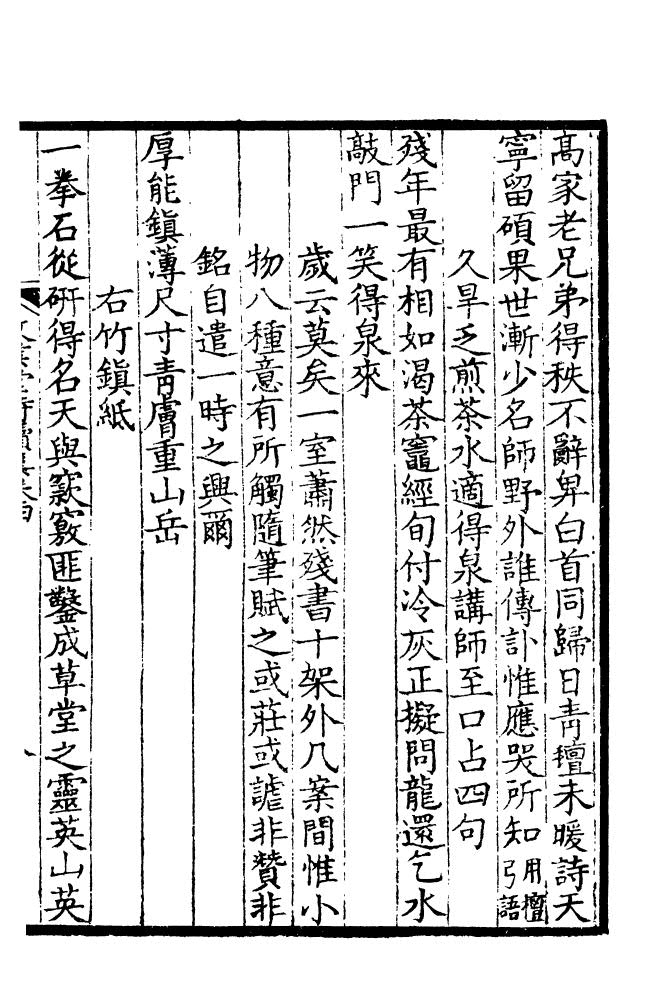 高家老兄弟得秩不辭卑白首同歸日靑氊未暖詩天
寧留碩果世漸少名師野外誰傳訃惟應哭所知用檀弓語
久旱乏煎茶水適得泉講師至口占四句
殘年最有相如渴茶竈經旬付冷灰正擬問龍還乞水
敲門一笑得泉來
歲云莫矣一室蕭然殘書十架外几案間惟小
物八種意有所觸隨筆賦之或莊或謔非贊非
銘自遣一時之興爾
厚能鎭薄尺寸靑膚重山岳
右竹鎭紙
一拳石從硏得名天與窾竅匪鑿成草堂之靈英山英